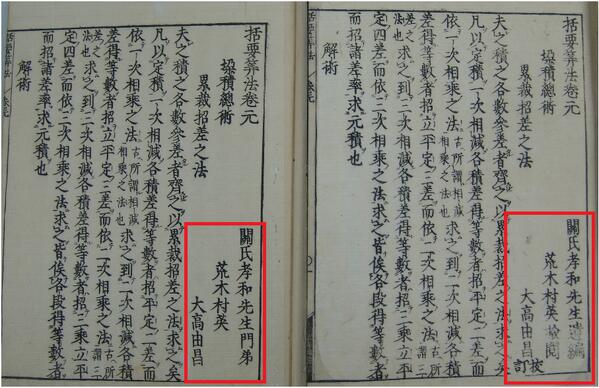 括要算法卷元
關氏孝和先生門弟
荒木村英
大高由昌
垜積總術
累裁招差之法
夫之積之各數參差者齊之以累裁招差之法求之矣
凡以定積一次相減各積差得等數者招平定二差而
依一次相乘之法古所謂相減相乘之法也求之到二次相減各積
差得等數者招立平定三差而依二次相乘之法古所謂三
差之法也求之到三次相減各積差得等數者招三乘立平
定四差而依三次相乘之法求之皆俟各段得等數者
而招諸差率求元積也
解術
括要算法 卷元
括要算法卷元
關氏孝和先生遺編
荒木村英檢閱
大高由昌校訂
垜積總術
累裁招差之法
夫之積之各數參差者齊之以累裁招差之法求之矣
凡以定積一次相減各積差得等數者招平定二差而
依一次相乘之法古所謂相減相乘之法也求之到二次相減各積
差得等數者招立平定三差而依二次相乘之法古所謂三
差之法也求之到三次相減各積差得等數者招三乘立平
定四差而依三次相乘之法求之皆俟各段得等數者
而招諸差率求元積也
解術
括要算法 卷元